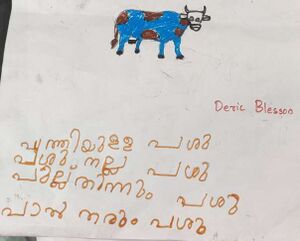 Deric Blesson
പുത്തിയുള്ള പശു
പശു നല്ല പശു
പുല്ല് തിന്നും പശു
പാൽ തരും പശു